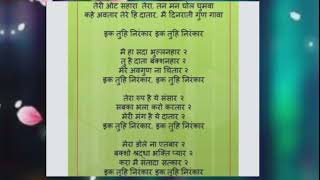 तेरी ओट सहारा तेरा, तन मन घोल घुमवा
कहे अवतार तेरे हि दातार, मै दिनराती गुण गावा
इक तुहि निरंकार इक तुहि निरंकार
मै हा सदा भुल्लनहार २
तु हे दाता बक्शनहार २
मेरे अवगुण ना चितार २
इक तुहि निरंकार, इक तुहि निरंकार
तेरा रुप है ये संसार २
सबका भला करो करतार २
तेरी मंग है ये दातार २
इक तुहि निरंकार, इक तुहि निरंकार
मेरा डोले ना एतबार २
बक्शो श्रद्धा भक्ति प्यार २
करा मै संतादा सत्कार २
इक तुहि निरंकार इक तुहि निरंकार